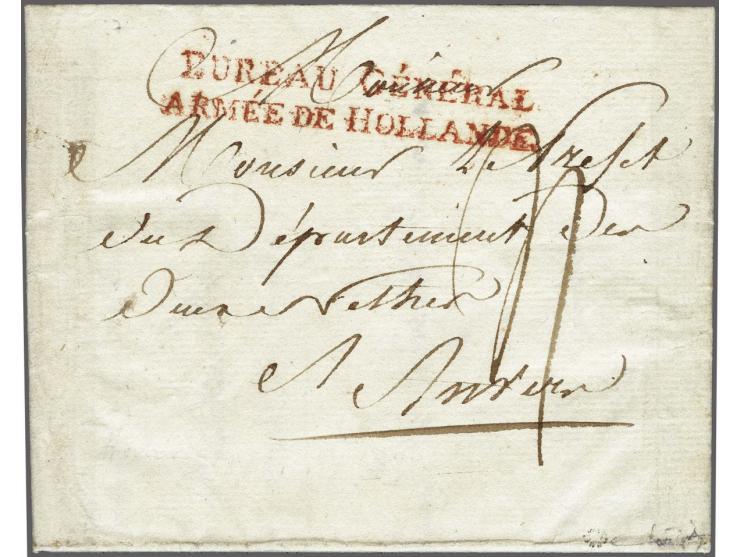 A Monsieur
BUREAU GÉNÉRAL
ARMÉE DE HOLLANDE.
Monsieur Le Préfet
du Département des
deux Nethes
A Anvers